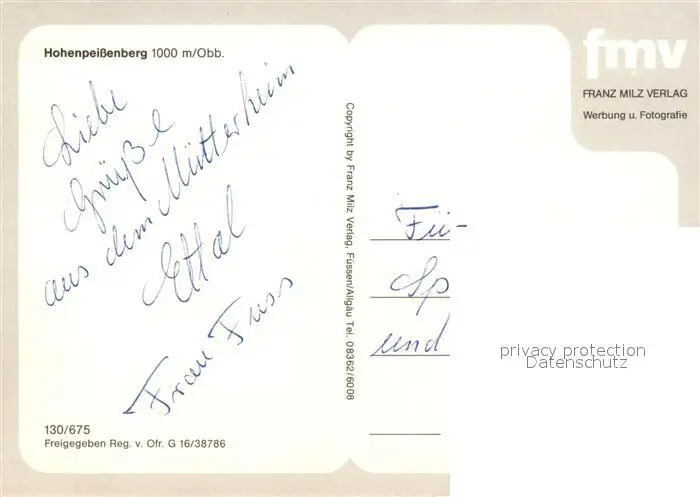 Hohenpeißenberg 1000 m/Obb.
Liebe
Grüße
aus dem Mütterheim
Ettal
Frau Fuss
130/675
Freigegeben Reg. v. Ofr. G 16/38786
Copyright by Franz Milz Verlag, Füssen/Allgäu Tel. 08362/6008
fmv
FRANZ MILZ VERLAG
Werbung u. Fotografie
Fü-
Sp
und
privacy protection
Datenschutz